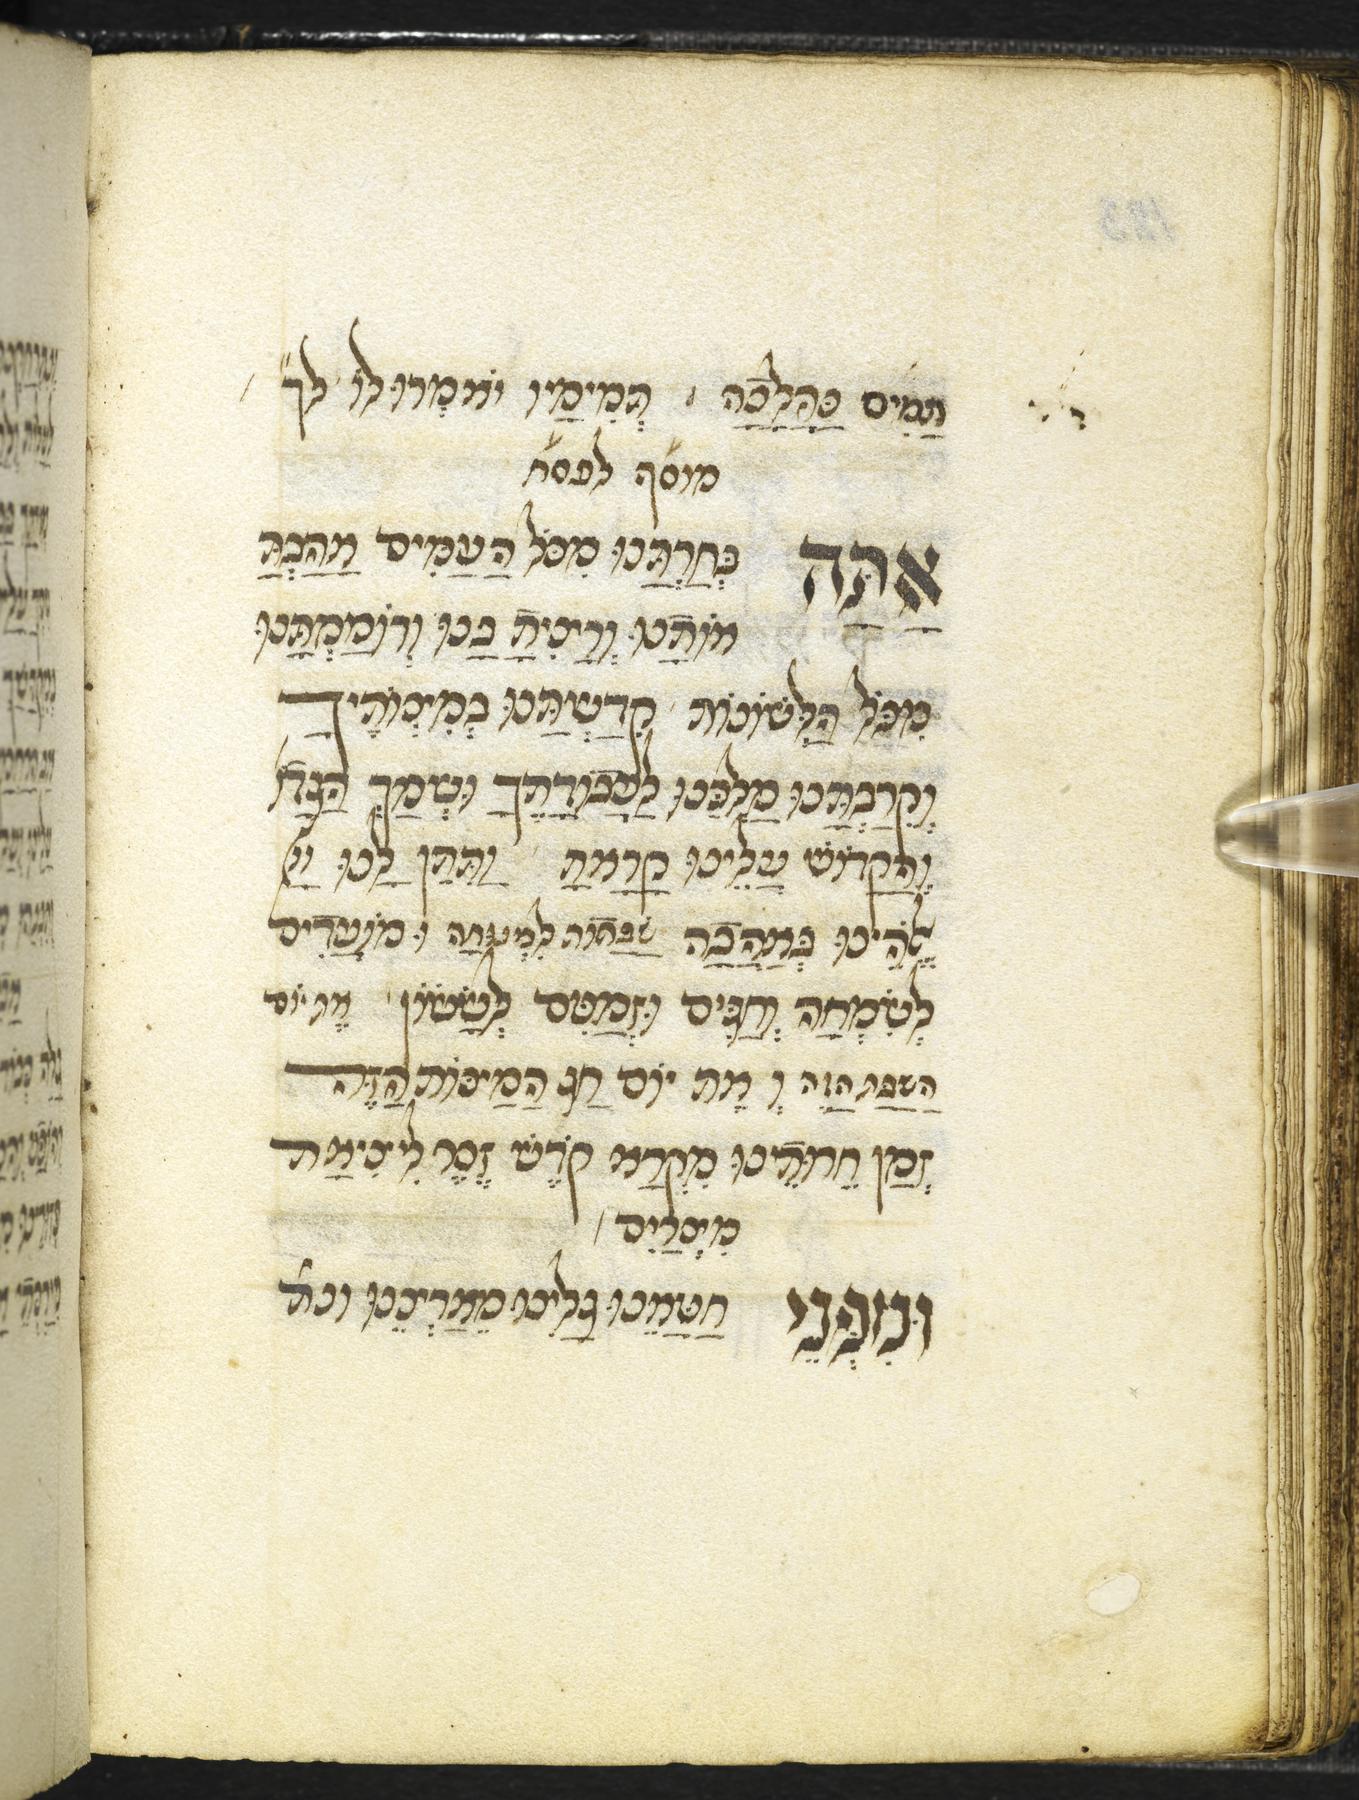 תַמִים כַּהֲלָכָה · תְּמִימָיו יֹאמְרוּ לוֹ לך
מוסף לפסח
אַתָּה בְּחַרְתָּנוּ מִכּל הַעַמִים אַהַבְתָּ
אוֹתָנוּ וְרָצִיתָ בָנוּ וְרוֹמַמְתָּנוּ
מִכּל הַלְּשׁוֹנוֹת קִדַשְׁתָּנוּ בְּמִצְוֹתֶיךָ
וְקֵרַבְתָּנוּ מַלְכֵּנוּ לַעֲבוֹדָתֶךָ וְשִׁמְךָ הַגָּדוֹל
וְהַקָדוֹשׁ עָלֵינוּ קָרָאתָ וַתִּתֶן לָנוּ יְיָ
אֱלֹהֵינוּ בְּאַהֲבָה שבתות לִמְנוּחָה וּ מוֹעֲדִים
לְשִׂמְחָה חַגִּים וּזְמַנִּים לְשָׂשׂוֹן אֶת יוֹם
הַשבַת הזה וְ אֶת יוֹם חַג הַמַצוֹת הַזֶּה
זְמַן חֵרוּתֵינוּ מִקְרָא קֹדֶשׁ זֵכֶר לִיצִיאַת
מִצְרַיִם
וּמִפְּנֵי חַטָּאֵנוּ גָלִינוּ מֵאַרְצֵנוּ וכול